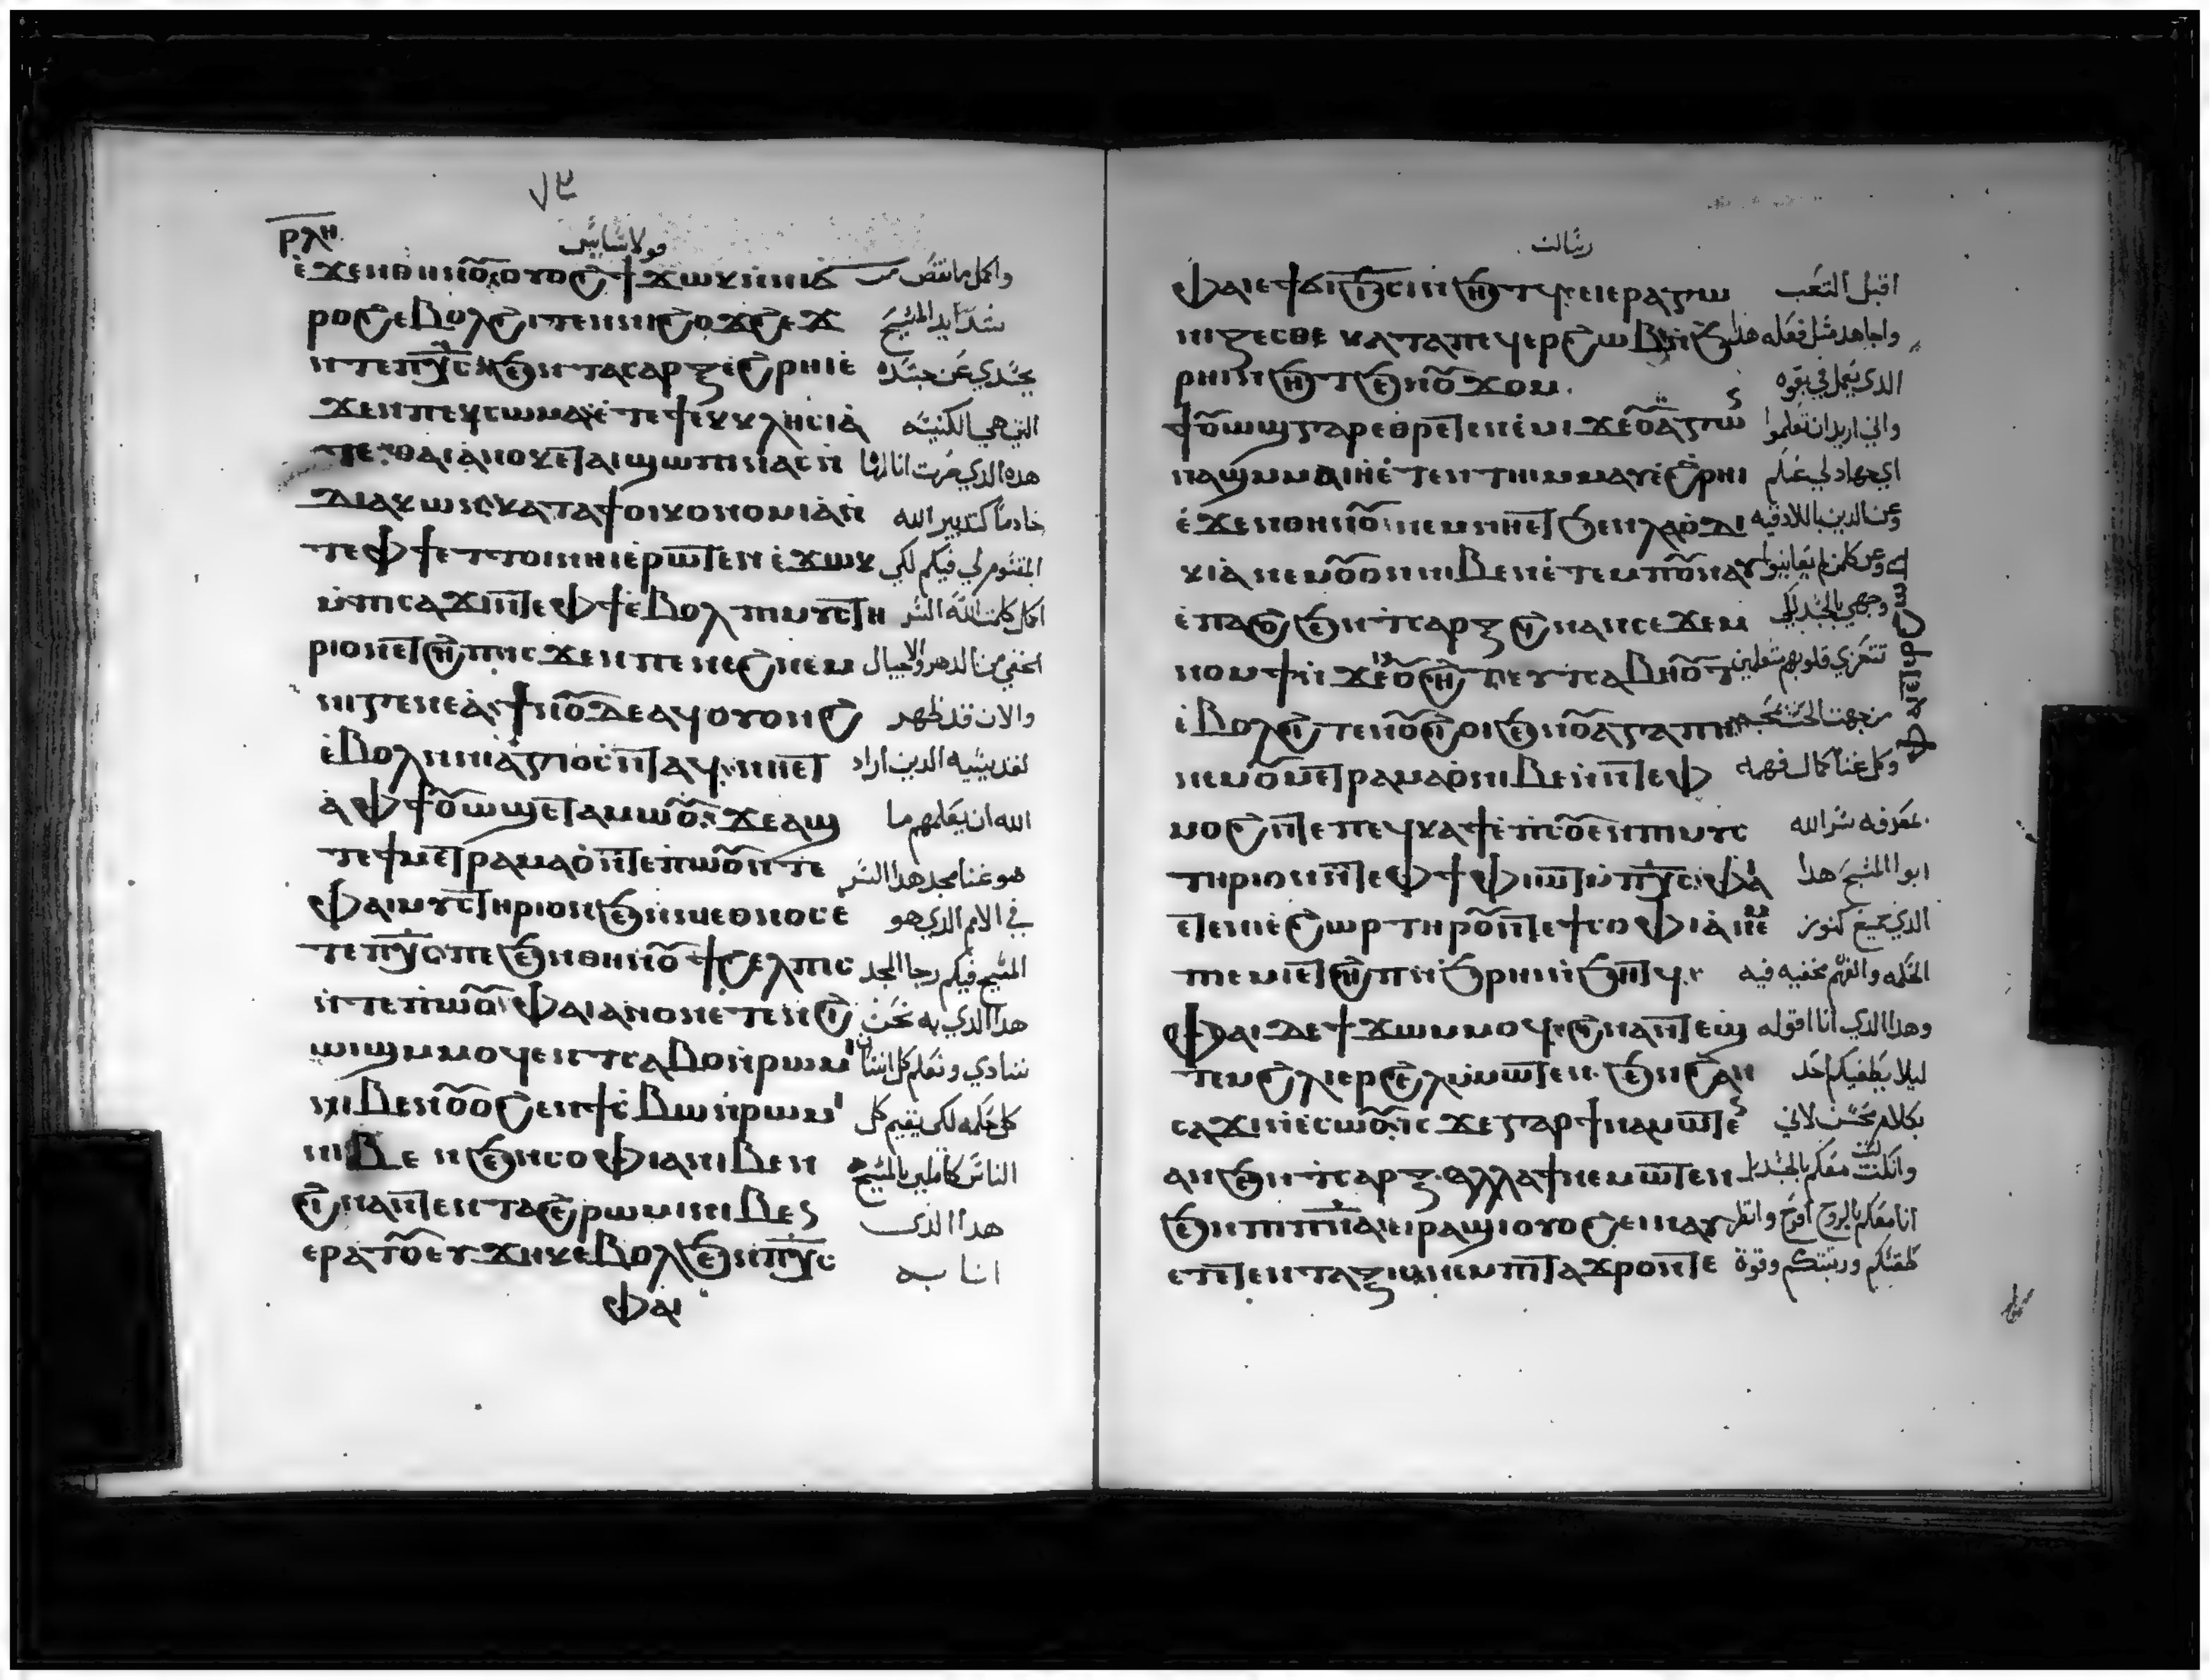 ⲣⲗⲏ
قولاسايس
ⲉϫⲉⲛⲑⲏⲛⲟⲩ ⲟⲩⲟϩ ϯϫⲱⲕ ⲛⲛⲓϭ واكمل ما نقص من
ⲣⲟϩ ⲉⲃⲟⲗϩⲓⲧⲉⲛ ⲛⲓϩⲟϫϩⲉϫ شدايد المسيح
ⲛⲧⲉⲡⲭⲥ ϧⲉⲛ ⲧⲁⲥⲁⲣⲝ ⲉϩⲣⲏⲓ ⲉ بجسدي عن جسده
ϫⲉⲛ ⲡⲉϥⲥⲱⲙⲁ ⲉⲧⲉ ϯⲉⲕⲕⲗⲏⲥⲓⲁ التي هي الكنيسه
ⲧⲉ ⲑⲁⲓ ⲁⲛⲟⲕ ⲉⲧⲁⲓϣⲱⲡⲓ ⲛⲁⲥ ⲛ هده الدي صرت انا لها
ⲇⲓⲁⲕⲱⲛ ⲕⲁⲧⲁ ϯⲟⲓⲕⲟⲛⲟⲙⲓⲁ ⲛ خادما كتدبير الله
ⲧⲉⲫϯ ⲉⲧⲧⲟⲓ ⲛⲏⲓ ⲉⲣⲱⲧⲉⲛ ⲉϫⲱⲕ المقسوم لي فيكم لكي
ⲙⲡⲥⲁϫⲓ ⲛⲧⲉⲫϯ ⲉⲃⲟⲗ ⲡⲓⲙⲩⲥⲧⲏ اكمل كلمت الله السر
ⲣⲓⲟⲛ ⲉⲧϩⲏⲡ ⲓⲥϫⲉⲛ ⲡⲉⲛⲉϩ ⲛⲉⲙ الخفي من الدهر والاجيال
ⲛⲓⲅⲉⲛⲉⲁ ϯⲛⲟⲩ ⲇⲉ ⲁϥⲟⲩⲟⲛϩ والان قد ظهر
ⲉⲃⲟⲗ ⲛⲛⲓⲁⲅⲓⲟⲥ ⲛⲧⲁϥ ⲛⲏⲉⲧ لقديسيه الدين اراد
ⲁⲫϯ ⲟⲩⲱϣ ⲉⲧⲁⲙⲱⲟⲩ ϫⲉ ⲁϣ الله ان يعلمهم ما
ⲧⲉ ϯⲙⲉⲧⲣⲁⲙⲁⲟ ⲛⲧⲉ ⲡⲱⲟⲩ ⲛⲧⲉ هو غنا مجد هدا السر
ⲫⲁⲓⲙⲩⲥⲧⲏⲣⲓⲟⲛ ϧⲉⲛ ⲛⲓⲉⲑⲛⲟⲥ ⲉ في الامم الدي هو
ⲧⲉ ⲡⲭⲥ ⲡⲉ ϧⲉⲛ ⲑⲏⲛⲟⲩ ϯϩⲉⲗⲡⲓⲥ المسيح فيكم رجا المجد
ⲛⲧⲉ ⲡⲱⲟⲩ ⲫⲁⲓ ⲁⲛⲟⲛ ⲉⲧⲉⲛϩⲓ هدا الدي به نحن
ⲱⲓϣ ⲙⲙⲟϥ ⲉⲛⲧⲥⲁⲃⲟ ⲛⲣⲱⲙⲓ ننادي ونعلم كل انسان
ⲛⲓⲃⲉⲛ ⲟⲩⲟϩ ⲉⲛϯⲥⲃⲱ ⲛⲣⲱⲙⲓ كل حكمه لكي نقيم كل
ⲛⲓⲃⲉⲛ ϧⲉⲛ ⲥⲟⲫⲓⲁ ⲛⲓⲃⲉⲛ الناس كاملين بالمسيح
ϩⲓⲛⲁ ⲛⲧⲉⲛⲧⲁϩⲉ ⲣⲱⲙⲓ ⲛⲓⲃⲉⲛ هدا الدى
ⲉⲣⲁⲧⲟⲩ ⲉⲩϫⲏⲕ ⲉⲃⲟⲗ ϧⲉⲛ ⲡⲭⲥ انا به
ⲫⲁⲓ
رسالت
ⲫⲁⲓ ⲉϯϭⲓϧⲓⲥⲓ ⲛϧⲏⲧϥ ⲉⲓⲉⲣⲁⲅⲱ اقبل التعب
ⲛⲓⲍⲉⲥⲑⲉ ⲕⲁⲧⲁ ⲡⲉϥⲉⲣϩⲱⲃ واجاهد مثل فعله هدا
ⲣⲏⲓ ⲛϧⲏⲧ ϧⲉⲛ ⲟⲩϫⲟⲙ الدي يعمل في بقوه
ϯⲟⲩⲱϣ ⲅⲁⲣ ⲉⲑⲣⲉⲧⲉⲛⲉⲙⲓ ϫⲉ ⲟⲩⲁⲅⲱⲛ واني اريد ان تعلموا
ⲛⲁϣ ⲙⲙⲁⲓⲏ ⲉⲧⲉⲛⲧⲏⲓ ⲙⲙⲁⲩ ⲉϩⲣⲏⲓ اي جهاد لي عنكم
ⲉϫⲉⲛ ⲑⲏⲛⲟⲩ ⲛⲉⲙ ⲛⲏⲉⲧ ϧⲉⲛ ⲗⲁⲟⲇⲓ وعن الدين باللادقيه
ⲕⲓⲁ ⲛⲉⲙ ⲟⲩⲟⲛ ⲛⲓⲃⲉⲛ ⲉⲧⲉⲙⲡⲟⲩⲛⲁⲩ وعن كل من لم يعاينوا
ⲉⲡⲁϩⲟ ϧⲉⲛ ⲧⲥⲁⲣⲝ ϩⲓⲛⲁ ⲛⲥⲉϫⲉⲙ وجهي بالجسد لكي
ⲛⲟⲙϯ ⲛϫⲉ ⲟⲩϩⲏⲧ ⲉⲩⲧⲥⲁⲃⲏⲟⲩⲧ تتعزي قلوبهم متعلمين
ⲉⲃⲟⲗϩⲓⲧⲉⲛ ⲟⲩϩⲟ ϧⲉⲛ ⲟⲩⲁⲅⲁⲡⲏ
ⲛⲉⲙ ⲟⲩⲙⲉⲧⲣⲁⲙⲁⲟ ⲛⲓⲃⲉⲛ ⲛⲧⲉ ⲫ وكل غنا كمال فهمه
ⲙⲟϩ ⲛⲧⲉ ⲡⲉϥⲕⲁϯ ⲉⲡⲥⲟⲩⲉⲛ ⲡⲓⲙⲩⲥ معرفه سر الله
ⲧⲏⲣⲓⲟⲛ ⲛⲧⲉ ⲫϯ ⲫⲓⲱⲧ ⲙⲡⲭⲥ ⲫⲁ ابوا المسيح هدا
ⲉⲧⲉ ⲛⲓⲉϩⲱⲣ ⲧⲏⲣⲟⲩ ⲛⲧⲉ ϯⲥⲟⲫⲓⲁ ⲛⲉ الدي جميع كنوز
ⲡⲉⲙⲓ ⲉⲧϩⲏⲡ ⲛϧⲣⲏⲓ ⲛϧⲏⲧϥ الحكمه والفهم مخفيه فيه
ⲫⲁⲓ ⲇⲉ ϯϫⲱ ⲙⲙⲟϥ ϩⲓⲛⲁ ⲛⲧⲉϣ وهدا الدي انا اقوله
ⲧⲉⲙ ϩⲗⲓ ⲉⲣϩⲁⲗ ⲙⲙⲱⲧⲉⲛ ϧⲉⲛ ϩⲁⲛ ليلا يطغيكم احد
ⲥⲁϫⲓ ⲛⲉⲥⲱⲟⲩ ⲓⲥϫⲉ ⲅⲁⲣ ϯⲛⲉⲙⲱⲧⲉⲛ بكلام محسن لاني
ⲁⲛ ϧⲉⲛ ⲧⲥⲁⲣⲝ ⲁⲗⲗⲁ ϯⲛⲉⲙⲱⲧⲉⲛ وان كنت لست معكم بالجسد
ϧⲉⲛ ⲡⲓⲡⲛⲁ ⲉⲓⲣⲁϣⲓ ⲟⲩⲟϩ ⲉⲓⲛⲁⲩ انا معكم بالروح افرح وانظر
ⲉⲧⲉⲧⲉⲛⲧⲁⲝⲓⲥ ⲛⲉⲙ ⲡⲧⲁϫⲣⲟ ⲛⲧⲉ طقسكم ورتبتكم وقوة